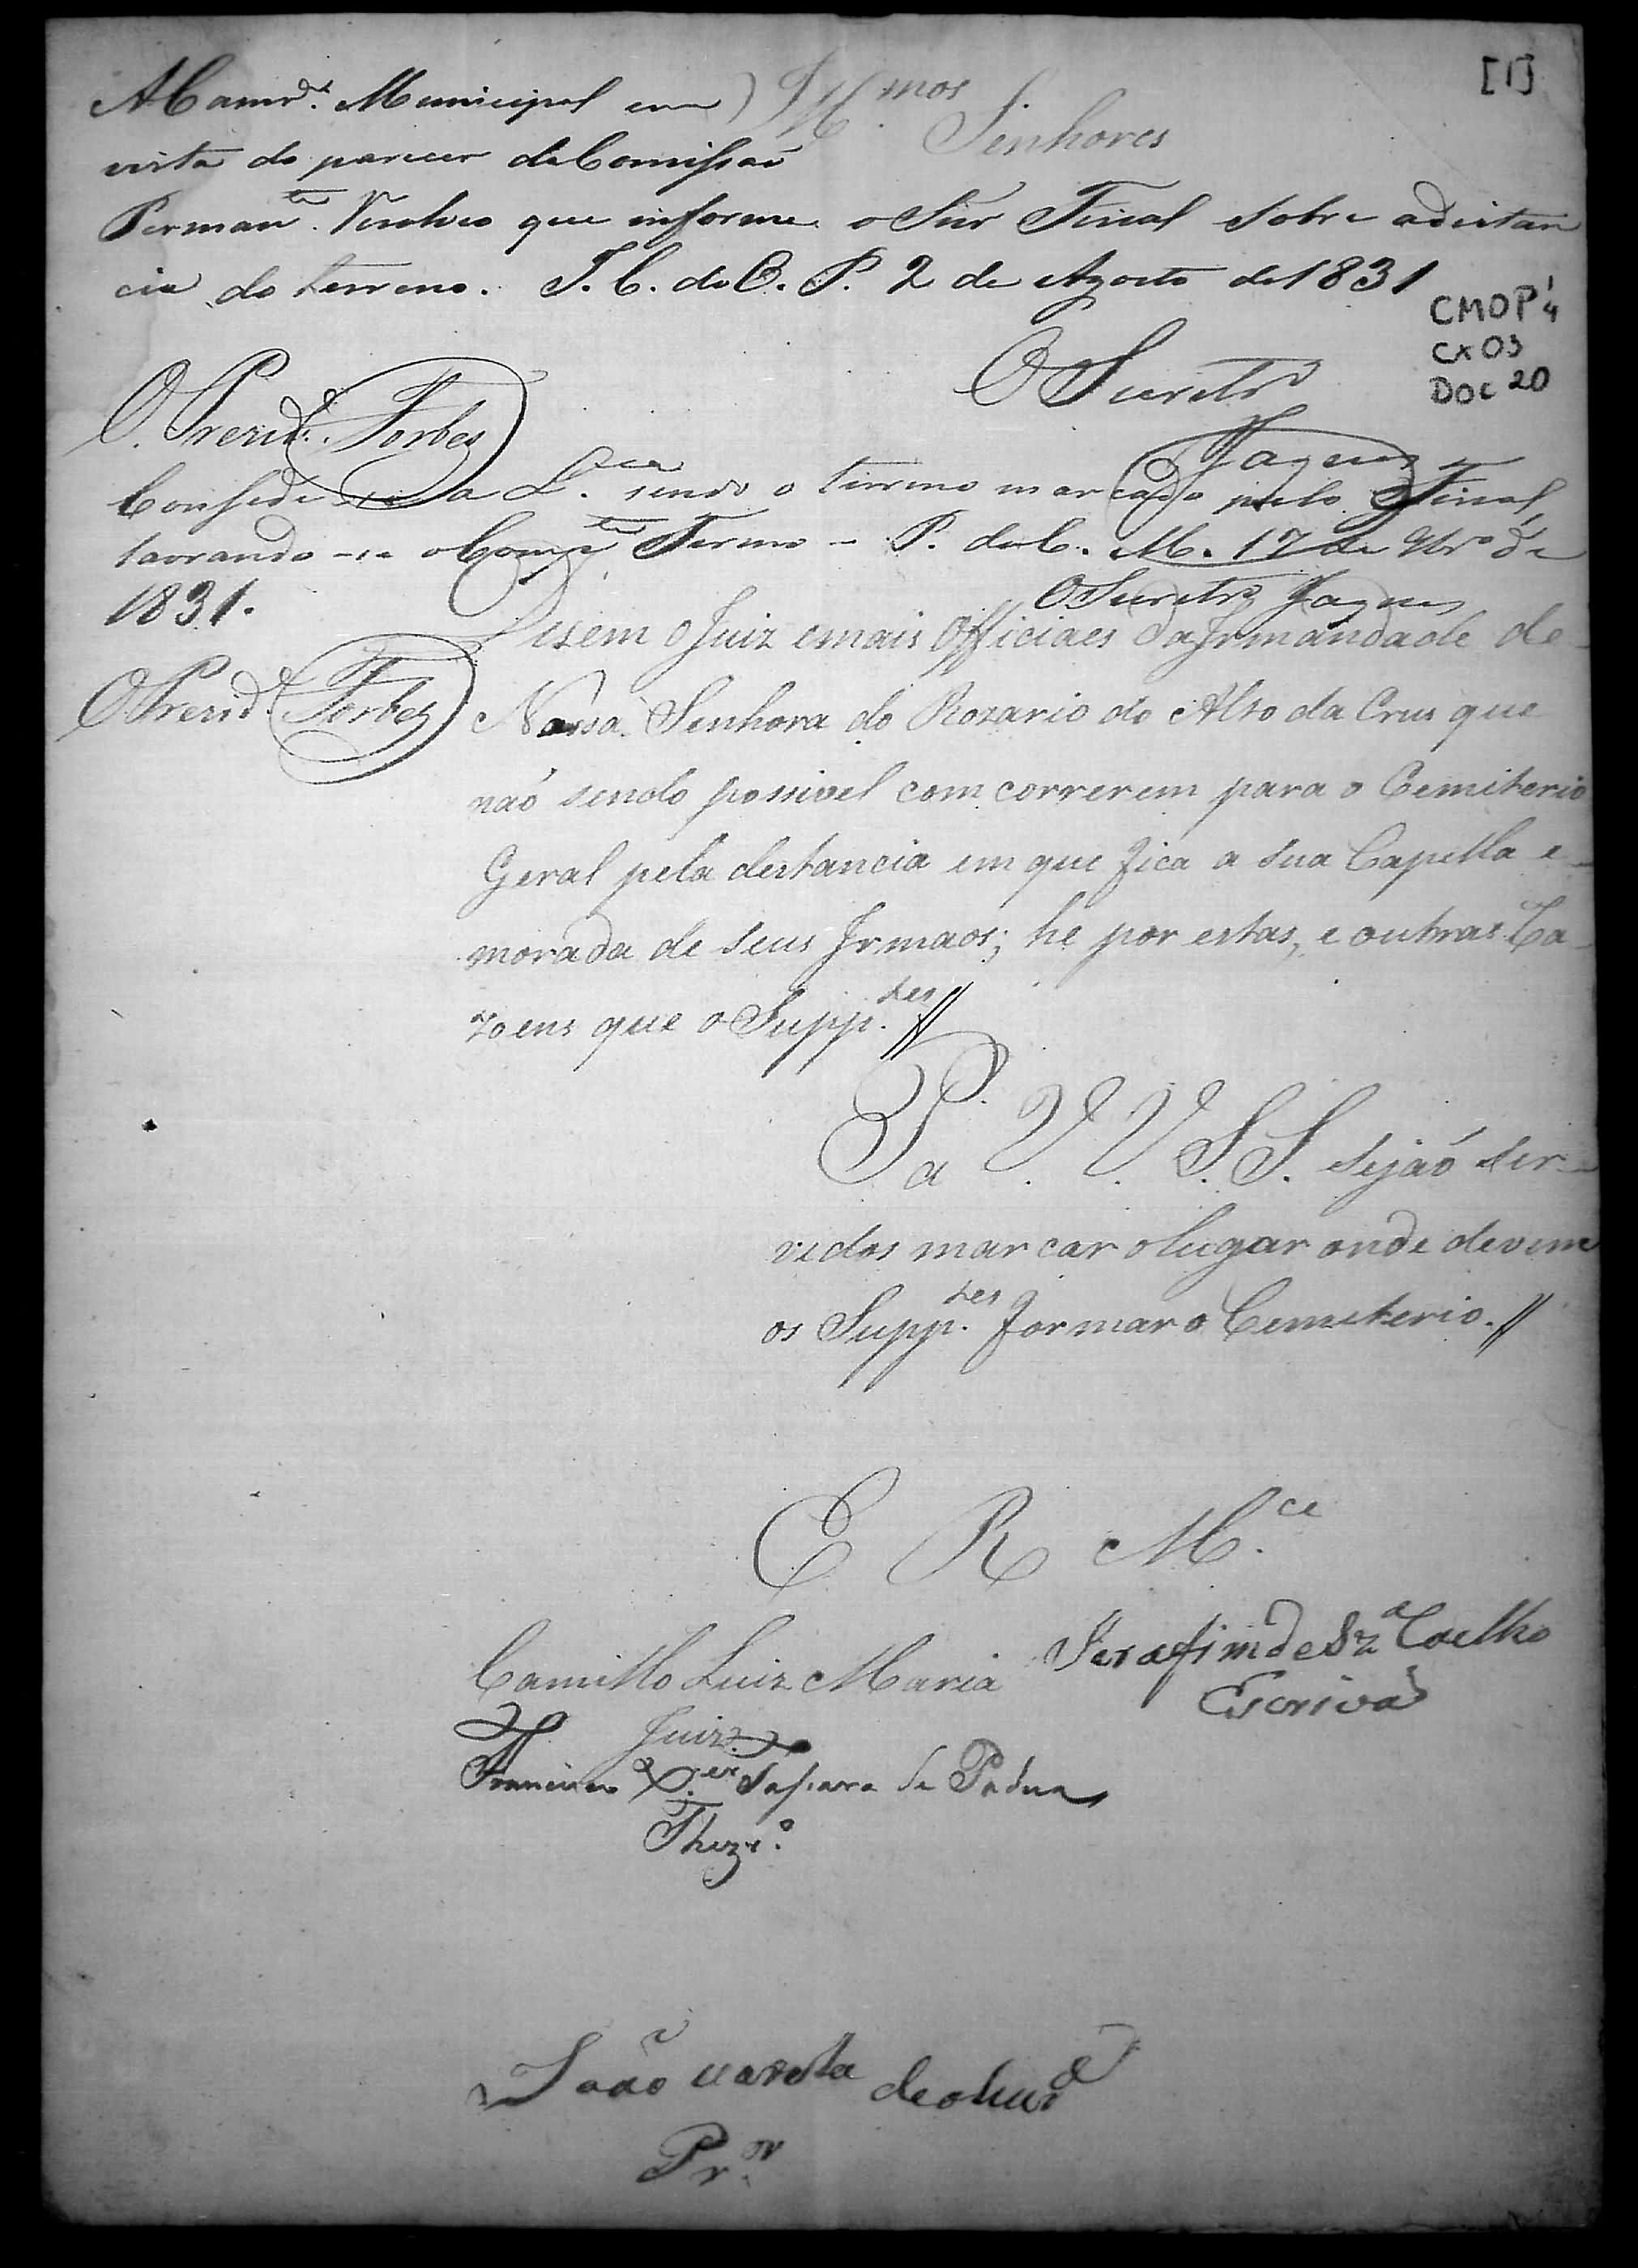 [1]
Ill.mos Senhores
A Camr.ª Municipal em
vista do parecer da Comissaõ
Perman.te Rezolveo que informe o Snr Fiscal sobre a distan
cia do terreno. I. C. do O. P. 2 de Agosto de 1831
CMOP 1/4
CX 03
DOC 20
O Secretr.º
Jaques
O Prezid.e Forbes
Consede-se a L.ca sendo o terreno marcado pelo Fiscal,
lavrando-se o Comp.te Termo - P. da C. M. 17 de 9br.º de
1831.
O Secretr.º Jaques
O Prezid.e Forbes
Dizem o Juiz e mais Officiaes da Irmandade de
Nossa Senhora do Rozario do Alto da Crus que
naõ sendo possivel comcorrerem para o Cemiterio
Geral pela destancia em que fica a sua Capella e
morada de seus Irmaos; he por estas, e outras Ra
zoens que o Supp.tes //
P. a V. V. S. S. sejaõ ser-
vidos marcar o lugar onde devem
os Supp.tes formar o Cemeterio. //
E R M.ce
Camillo Luiz Maria
Juiz
Serafim de Sz.ª Coelho
Escrivaõ
Francisco X.er de Padua
Thezr.º
Joaõ varella de oliur.ª
Pr.or